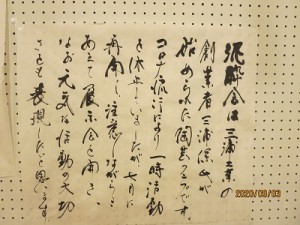 泥酔会は三浦工業の
創業者三浦保氏が
始められた陶芸です。
コロナ流行により一時活動
を休止しましたが七月に
再開し注意しながら
あえて展示会を開き、
なお元気な活動の大切
さを表現したいと思います
2020/08/03